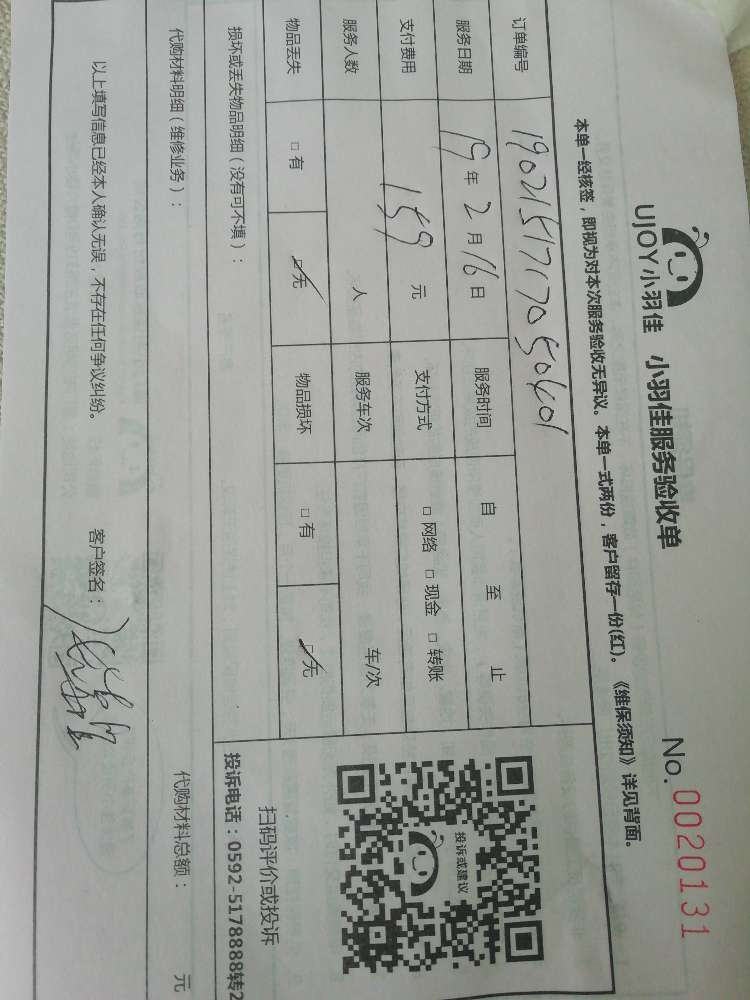 UJOY小羽佳 小羽佳服务验收单 No. 0020131
本单一经核签，即视为对本次服务验收无异议。本单一式两份，客户留存一份(红)。《维保须知》详见背面。
订单编号
服务日期 19年2月16日 服务时间 自 至 止
支付费用 159元 支付方式 □网络 □现金 □转账
服务人数 人 服务车次 车/次
物品丢失 □有 □无 物品损坏 □有 □无
投诉或建议
扫码评价或投诉
损坏或丢失物品明细（没有可不填）： 投诉电话：0592-5178888转2
代购材料明细（维修业务）： 代购材料总额： 元
以上填写信息已经本人确认无误，不存在任何争议纠纷。 客户签名：